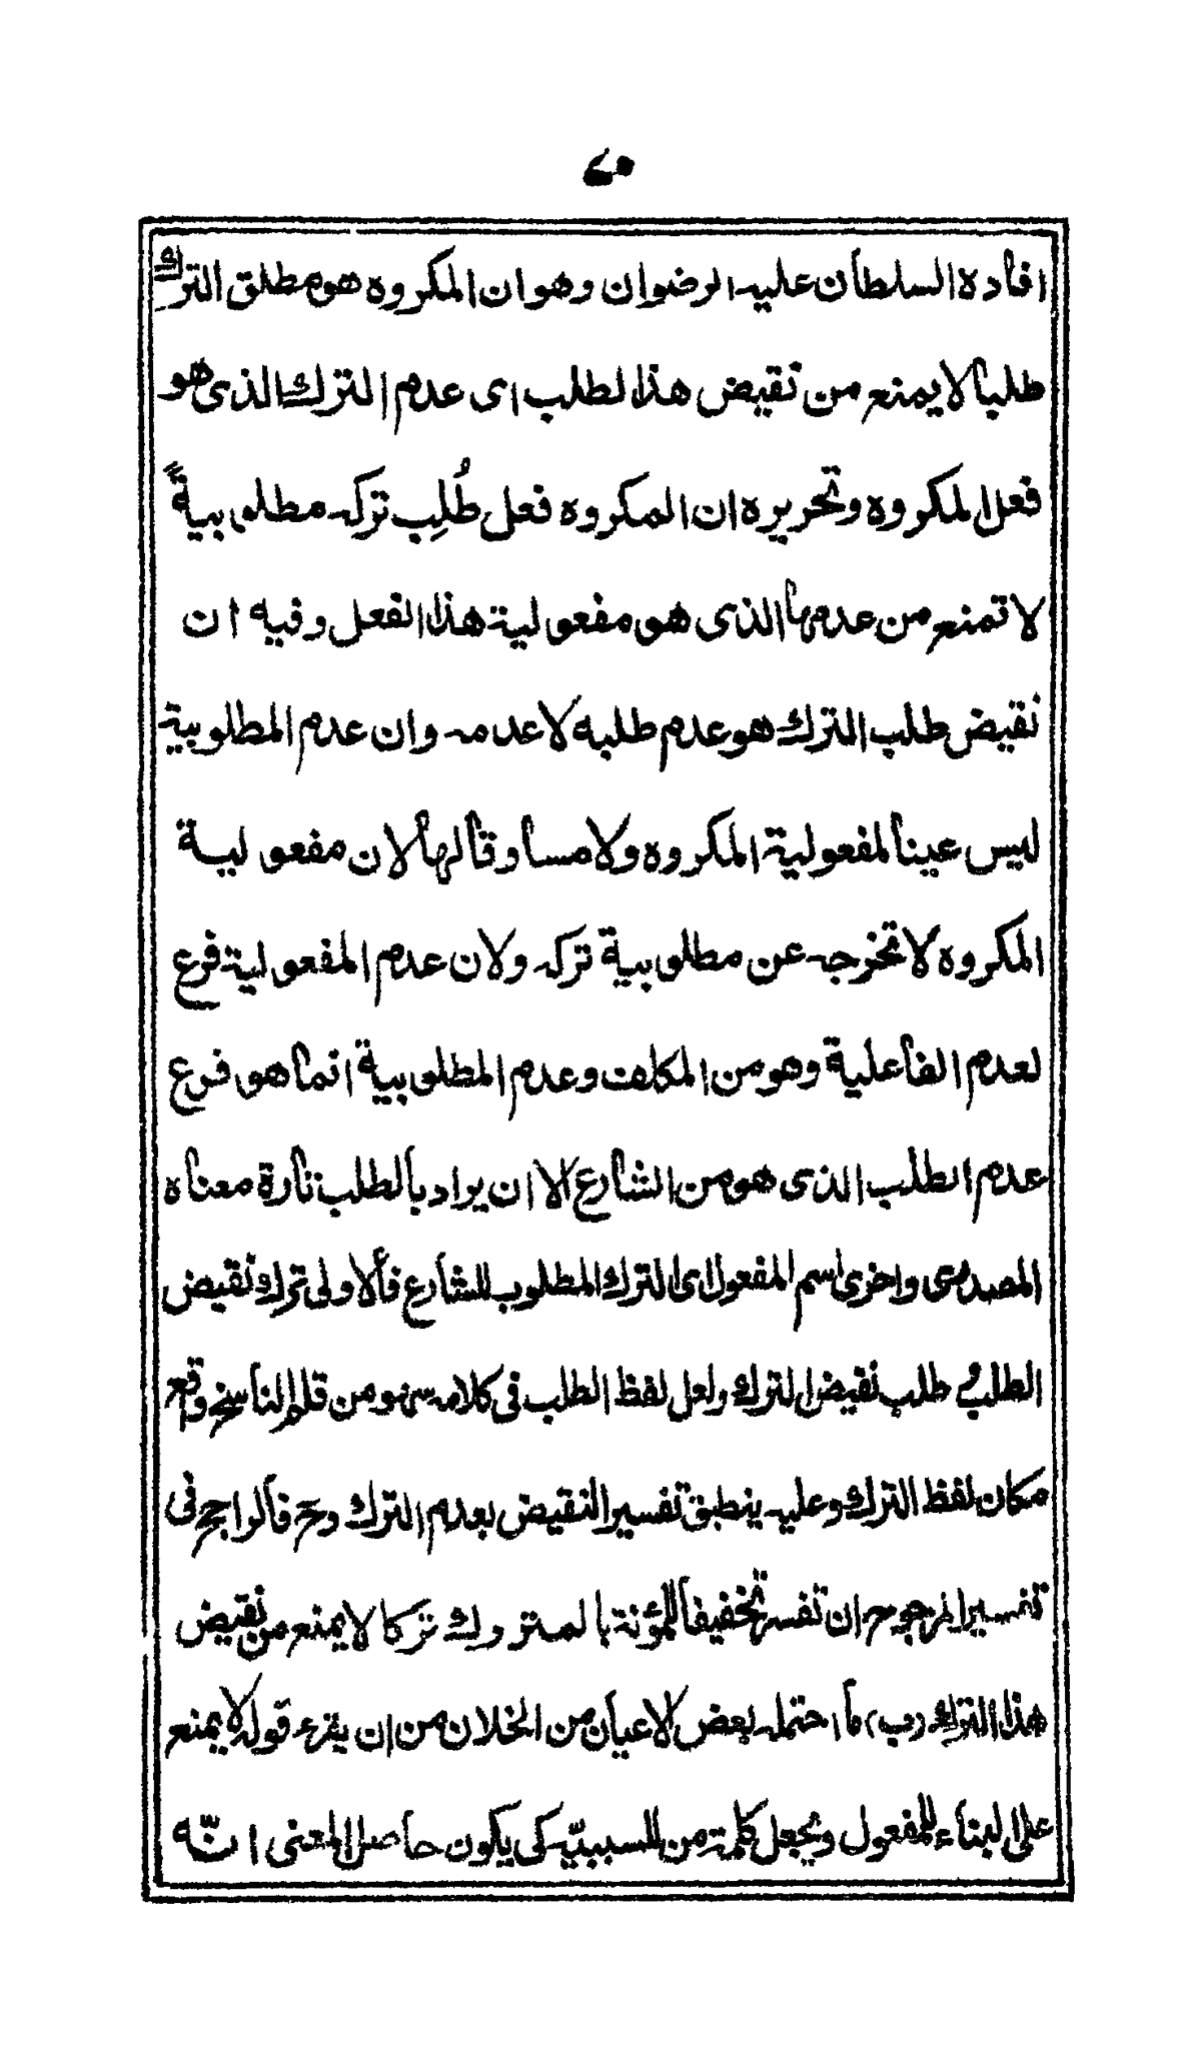 افاده السلطان عليه الرضوان وهو ان المكروه هو مطلق الترك
طلبا لا يمنع من نقيض هذا الطلب اى عدم الترك الذى هو
فعل المكروه وتحريره ان المكروه فعل طُلِب تركه مطلوبيةً
لا تمنع من عدمها الذى هو مفعولية هذا الفعل وفيه ان
نقيض طلب الترك هو عدم طلبه لا عدمه وان عدم المطلوبية
ليس عينا لمفعولية المكروه ولا مساوقا لها لان مفعولية
المكروه لا تخرجه عن مطلوبية تركه ولان عدم المفعولية فرع
لعدم الفاعلية وهو من المكلف وعدم المطلوبية انما هو فرع
عدم الطلب الذى هو من الشارع الا ان يراد بالطلب تارة معناه
المصدرى واخرى اسم المفعول اى الترك المطلوب للشارع فالاولى ترك نقيض
الطلب طلب نقيض الترك ولعل لفظ الطلب فى كلامه سهو من قلم الناسخ وقع
مكان لفظ الترك وعليه ينطبق تفسير النقيض بعدم الترك وح فالراجح فى
تفسير المرجوح ان تفسر تخفيفا للمؤنة بالمتروك تركا لا يمنع من نقيض
هذا الترك (ب) ما احتمله بعض الاعيان من الخلان من ان يقرء قوله لا يمنع
على البناء للمفعول ويجعل كلمة من للسببيّه كى يكون حاصل المعنى انّه